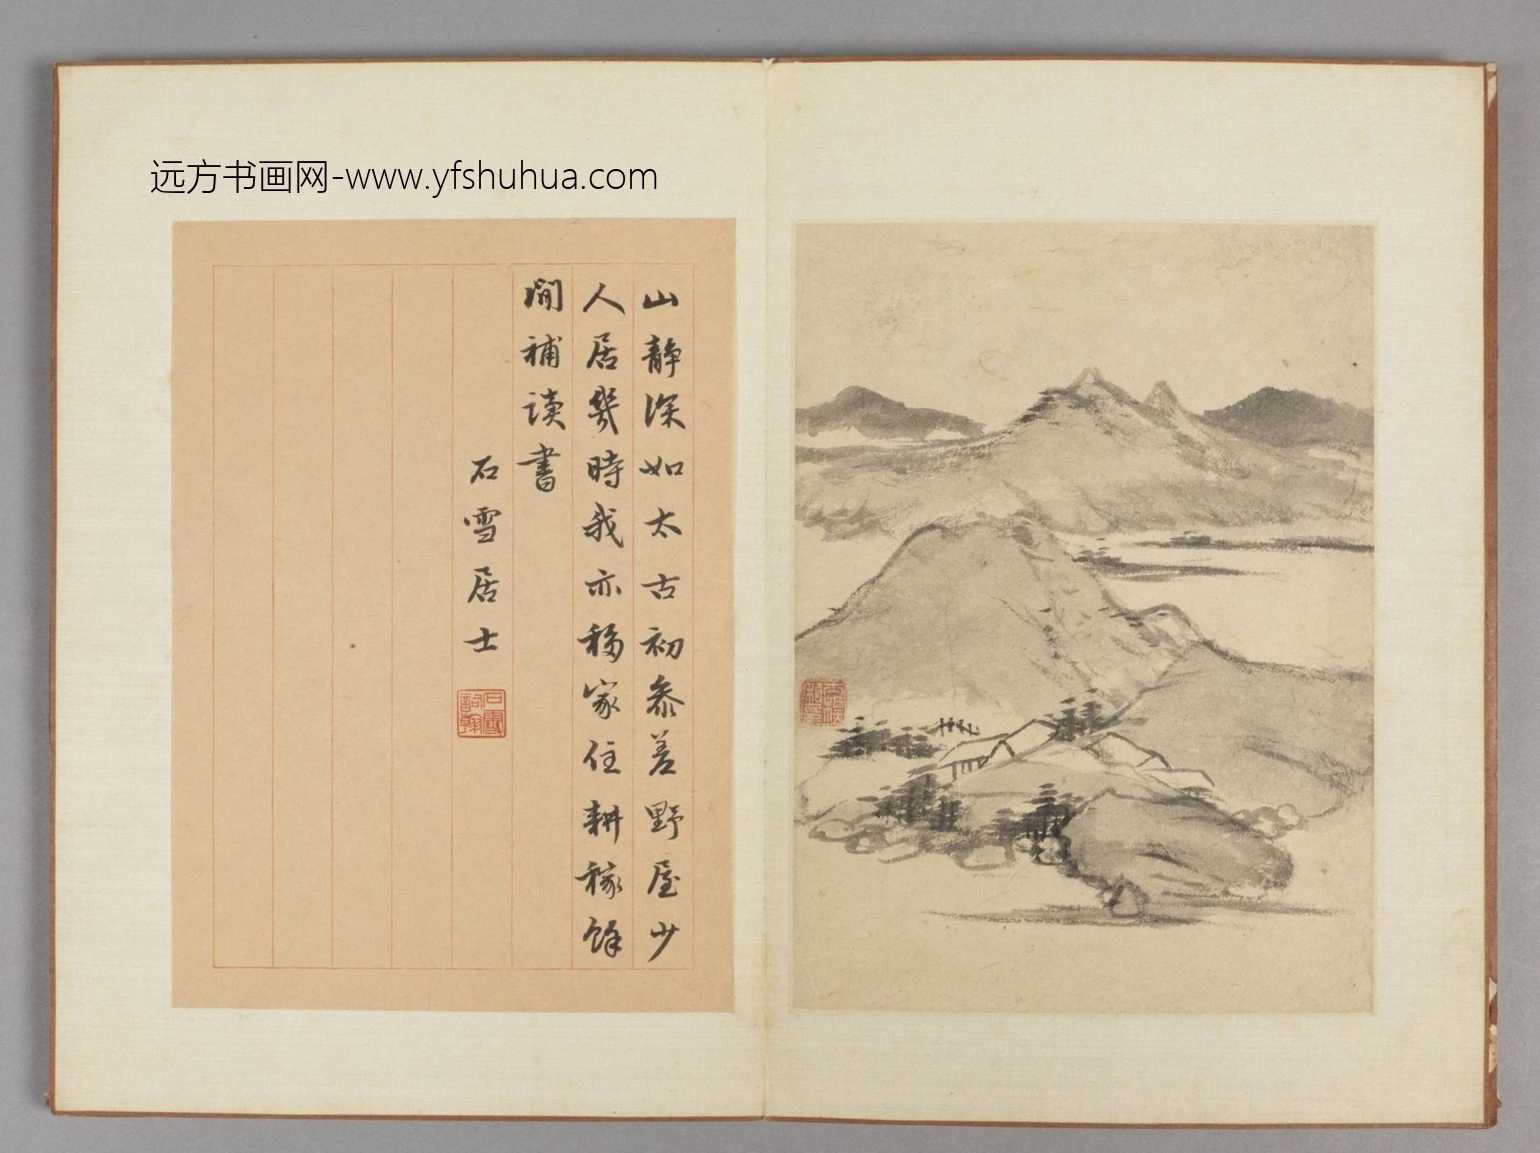 远方书画网-www.yfshuhua.com
山静深如太古初参差野屋少
人居幾時我亦移家住耕稼餘
閒補读書
石雪居士